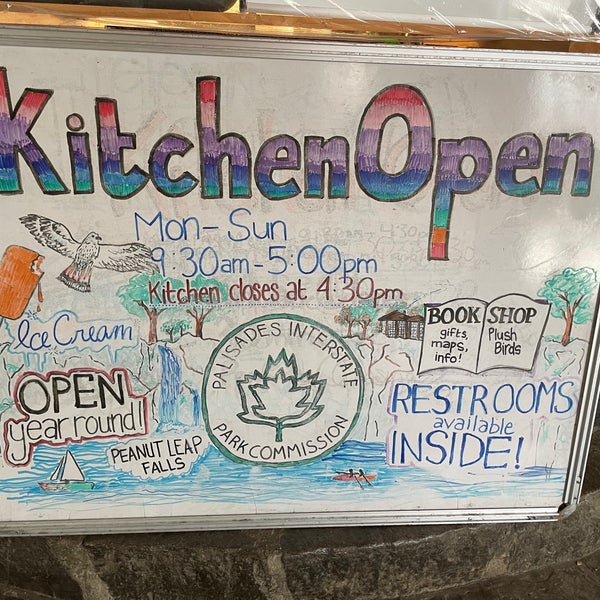 Kitchen Open
Mon-Sun
9:30am-5:00pm
Kitchen closes at 4:30pm
Ice Cream
OPEN
year round!
PEANUT LEAP
FALLS
PALISADES INTERSTATE
PARK COMMISSION
BOOK SHOP
gifts,
maps,
info!
Plush
Birds
RESTROOMS
available
INSIDE!